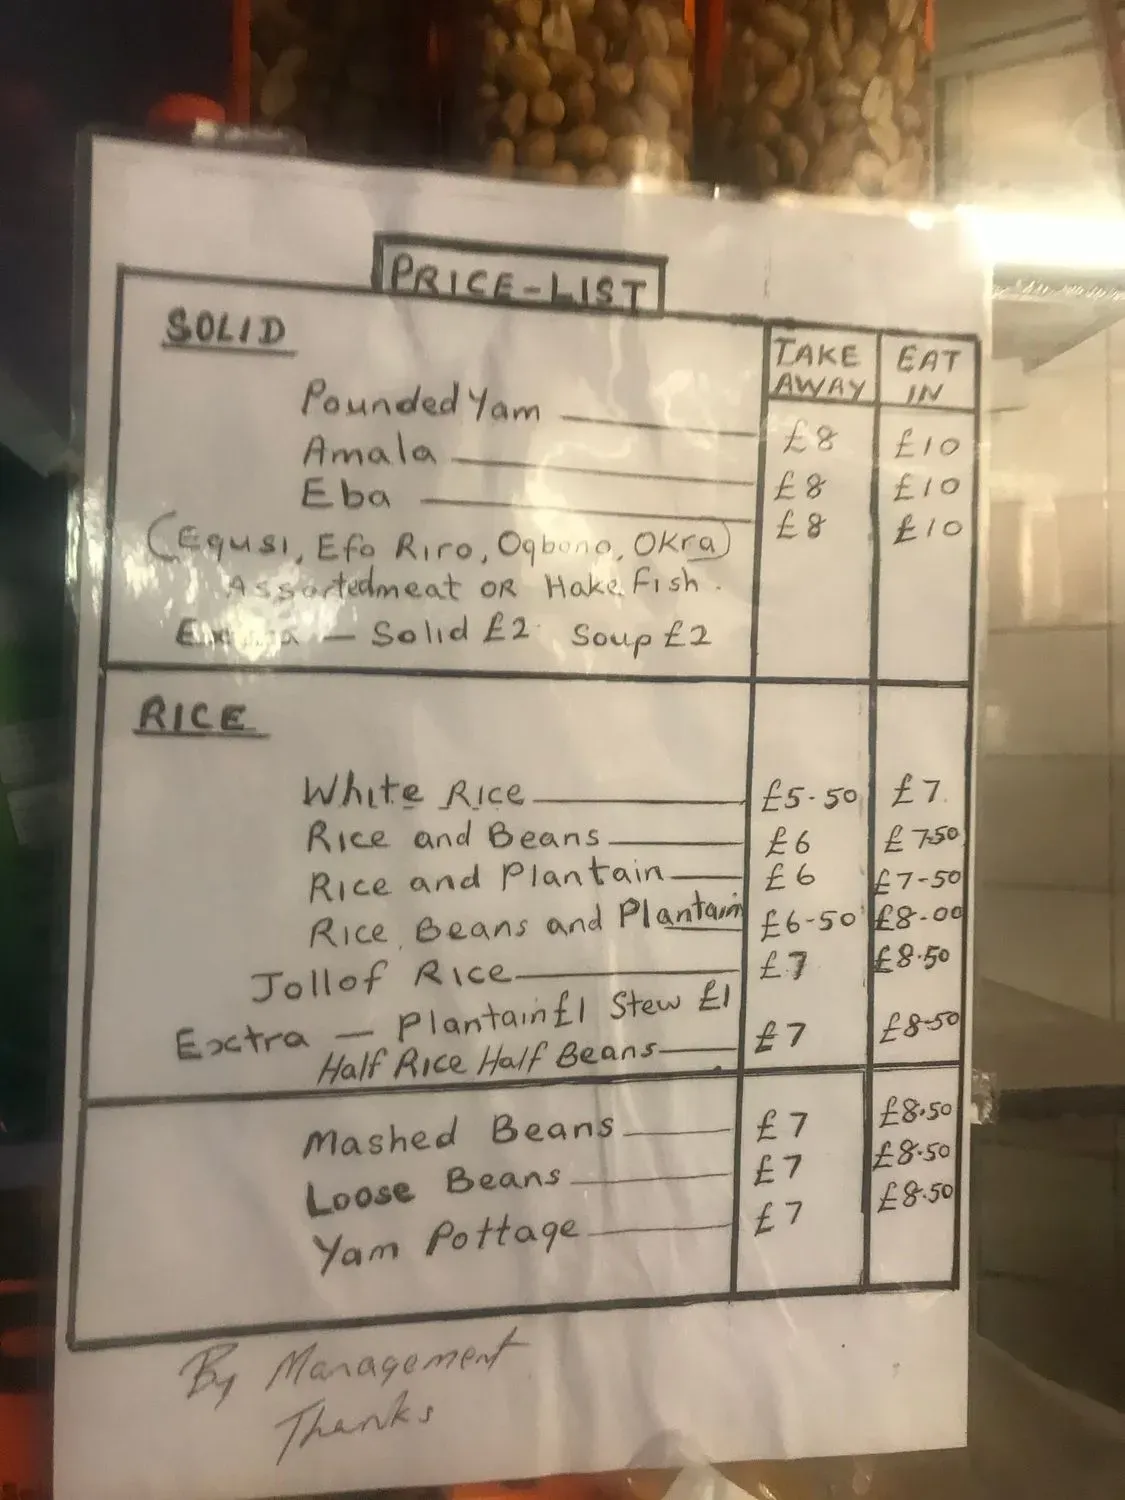 PRICE-LIST
SOLID
TAKE AWAY
EAT IN
Pounded Yam £8 £10
Amala £8 £10
Eba £8 £10
(Egusi, Efo Riro, Ogbono, Okra)
Assorted meat OR Hake Fish.
Solid £2 Soup £2
RICE
White Rice £5.50 £7
Rice and Beans £6 £7.50
Rice and Plantain £6 £7-50
Rice, Beans and Plantain £6-50 £8-00
Jollof Rice £7 £8.50
Exctra — Plantain £1 Stew £1
Half Rice Half Beans £7 £8-50
Mashed Beans £7 £8.50
Loose Beans £7 £8.50
Yam Pottage £7 £8.50
By Management
Thanks